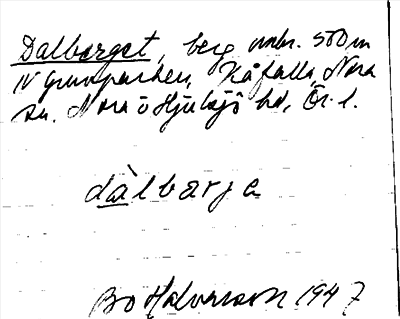 Dalberget, berg omkr. 500 m
N Gruvparken, Kåfalla, Nora
sn. Nora o Hjulsjö bd, Ör. l.
dàlbærje
Bo Halvarson 1947